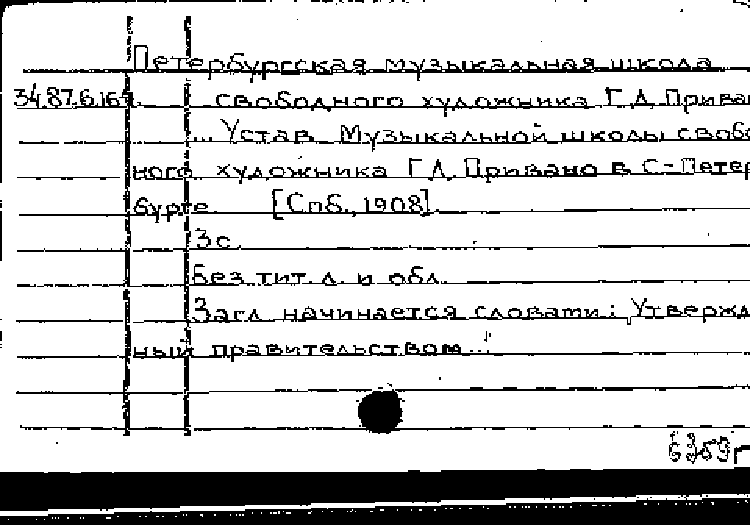 Петербургская музыкальная школа
34.87.6.164. свободного художника Г.Л. Прива
... Устав Музыкальной школы своб
ного художника Г.Л. Привано в С-Петер
бурге. [Спб., 1908].
3 с.
Без тит. л. и обл.
Загл. начинается словами: Утвержд
ный правительством...